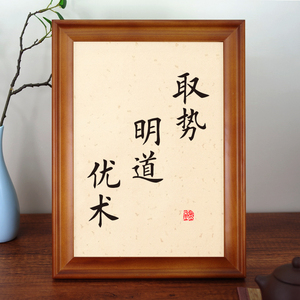 取势
明道
优术